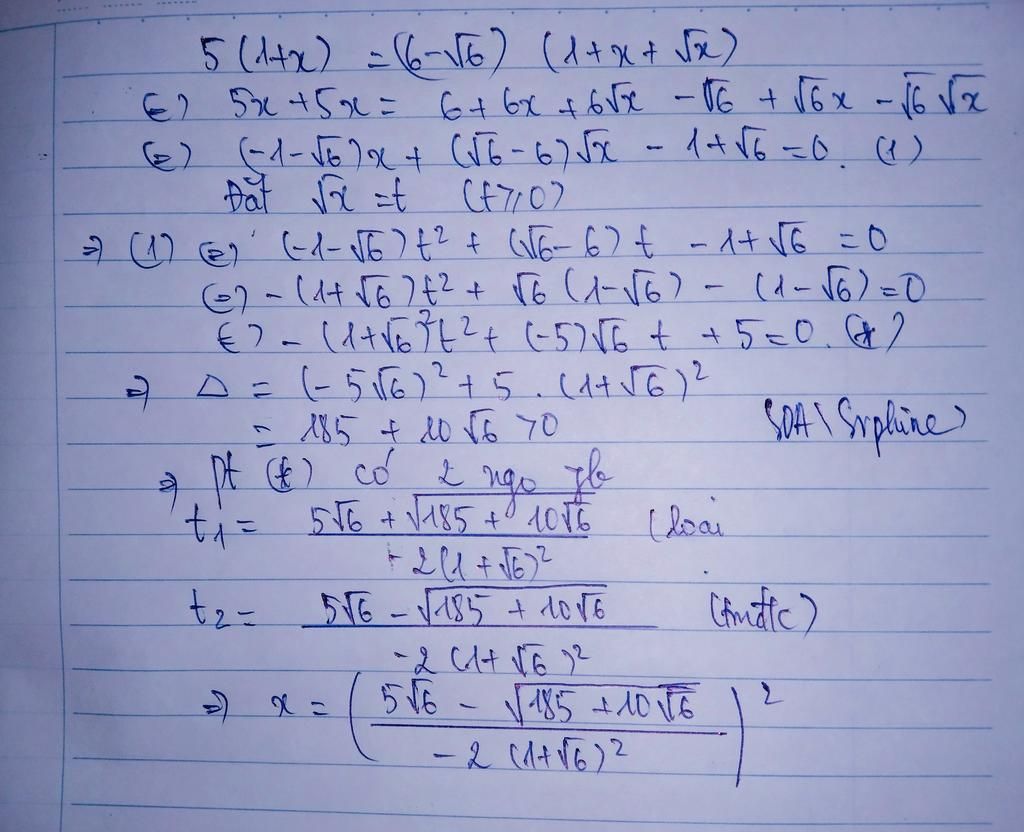 5 (1+x) = (6-√6) (1+x+√x)
€) 5x+5x = 6+6x+6√x -√6 + √6x -√6√x
(=) (-1-√6)x + (√6-6)√x - 1+√6 =0. (1)
Đặt √x =t (t≥0)
=> (1) (=) (-1-√6)t² + (√6-6)t - 1+√6 =0
(=) -(1+√6)t² + √6 (1-√6) - (1-√6)=0
€) - (1+√6)²t² + (-5)√6 t + 5=0. (*)
=> Δ = (-5√6)² + 5 . (1+√6)²
= 185 + 10√6 >0
=> pt (*) có 2 ngo
t₁ = (5√6 + √(185 + 10√6)) / (-2(1+√6)²) (loai
t₂ = (5√6 - √(185 + 10√6)) / (-2(1+√6)²) (tmđk)
=> x = ((5√6 - √(185 + 10√6)) / (-2(1+√6)²))²